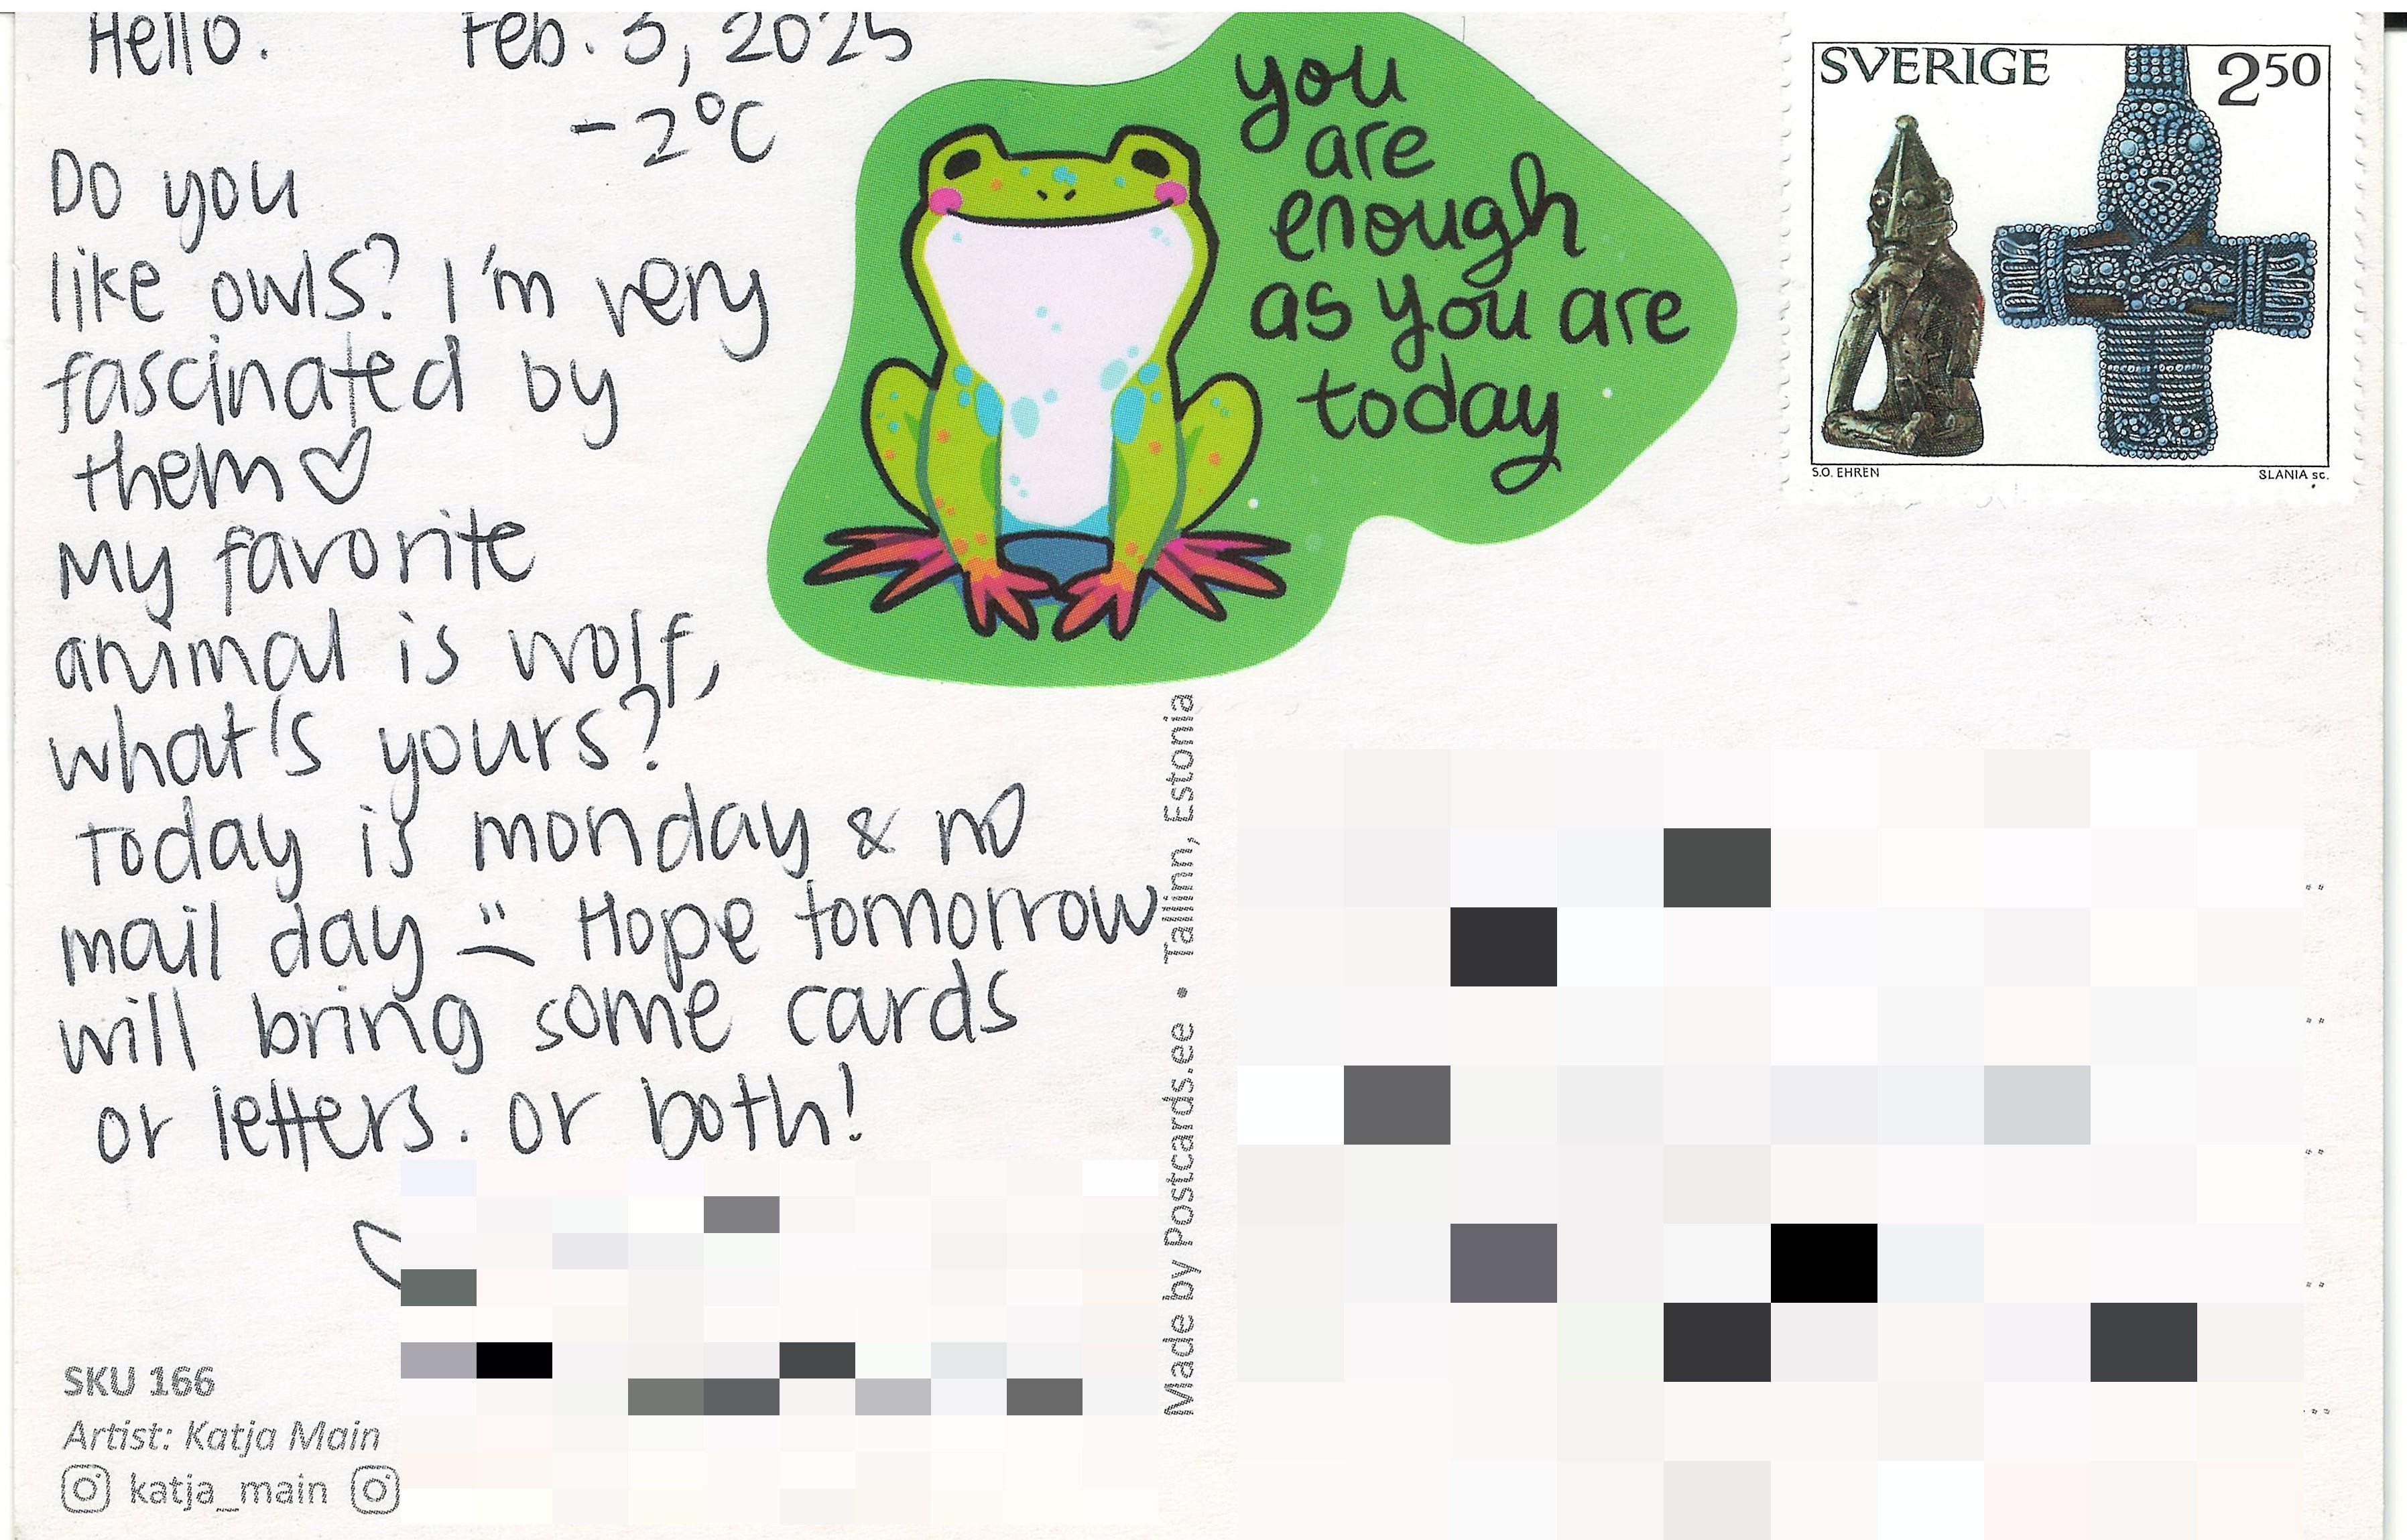 Hello. Feb. 3, 2025
-2°C
Do you
like owls? I'm very
fascinated by
them♡
My favorite
animal is wolf,
what's yours?
Today is monday & no
mail day :( Hope tomorrow
will bring some cards
or letters. or both!
you
are
enough
as you are
today
SVERIGE 250
S.O. EHREN SLANIA sc.
Made by Postcards.ee • Tallinn, Estonia
SKU 166
Artist: Katja Main
katja_main